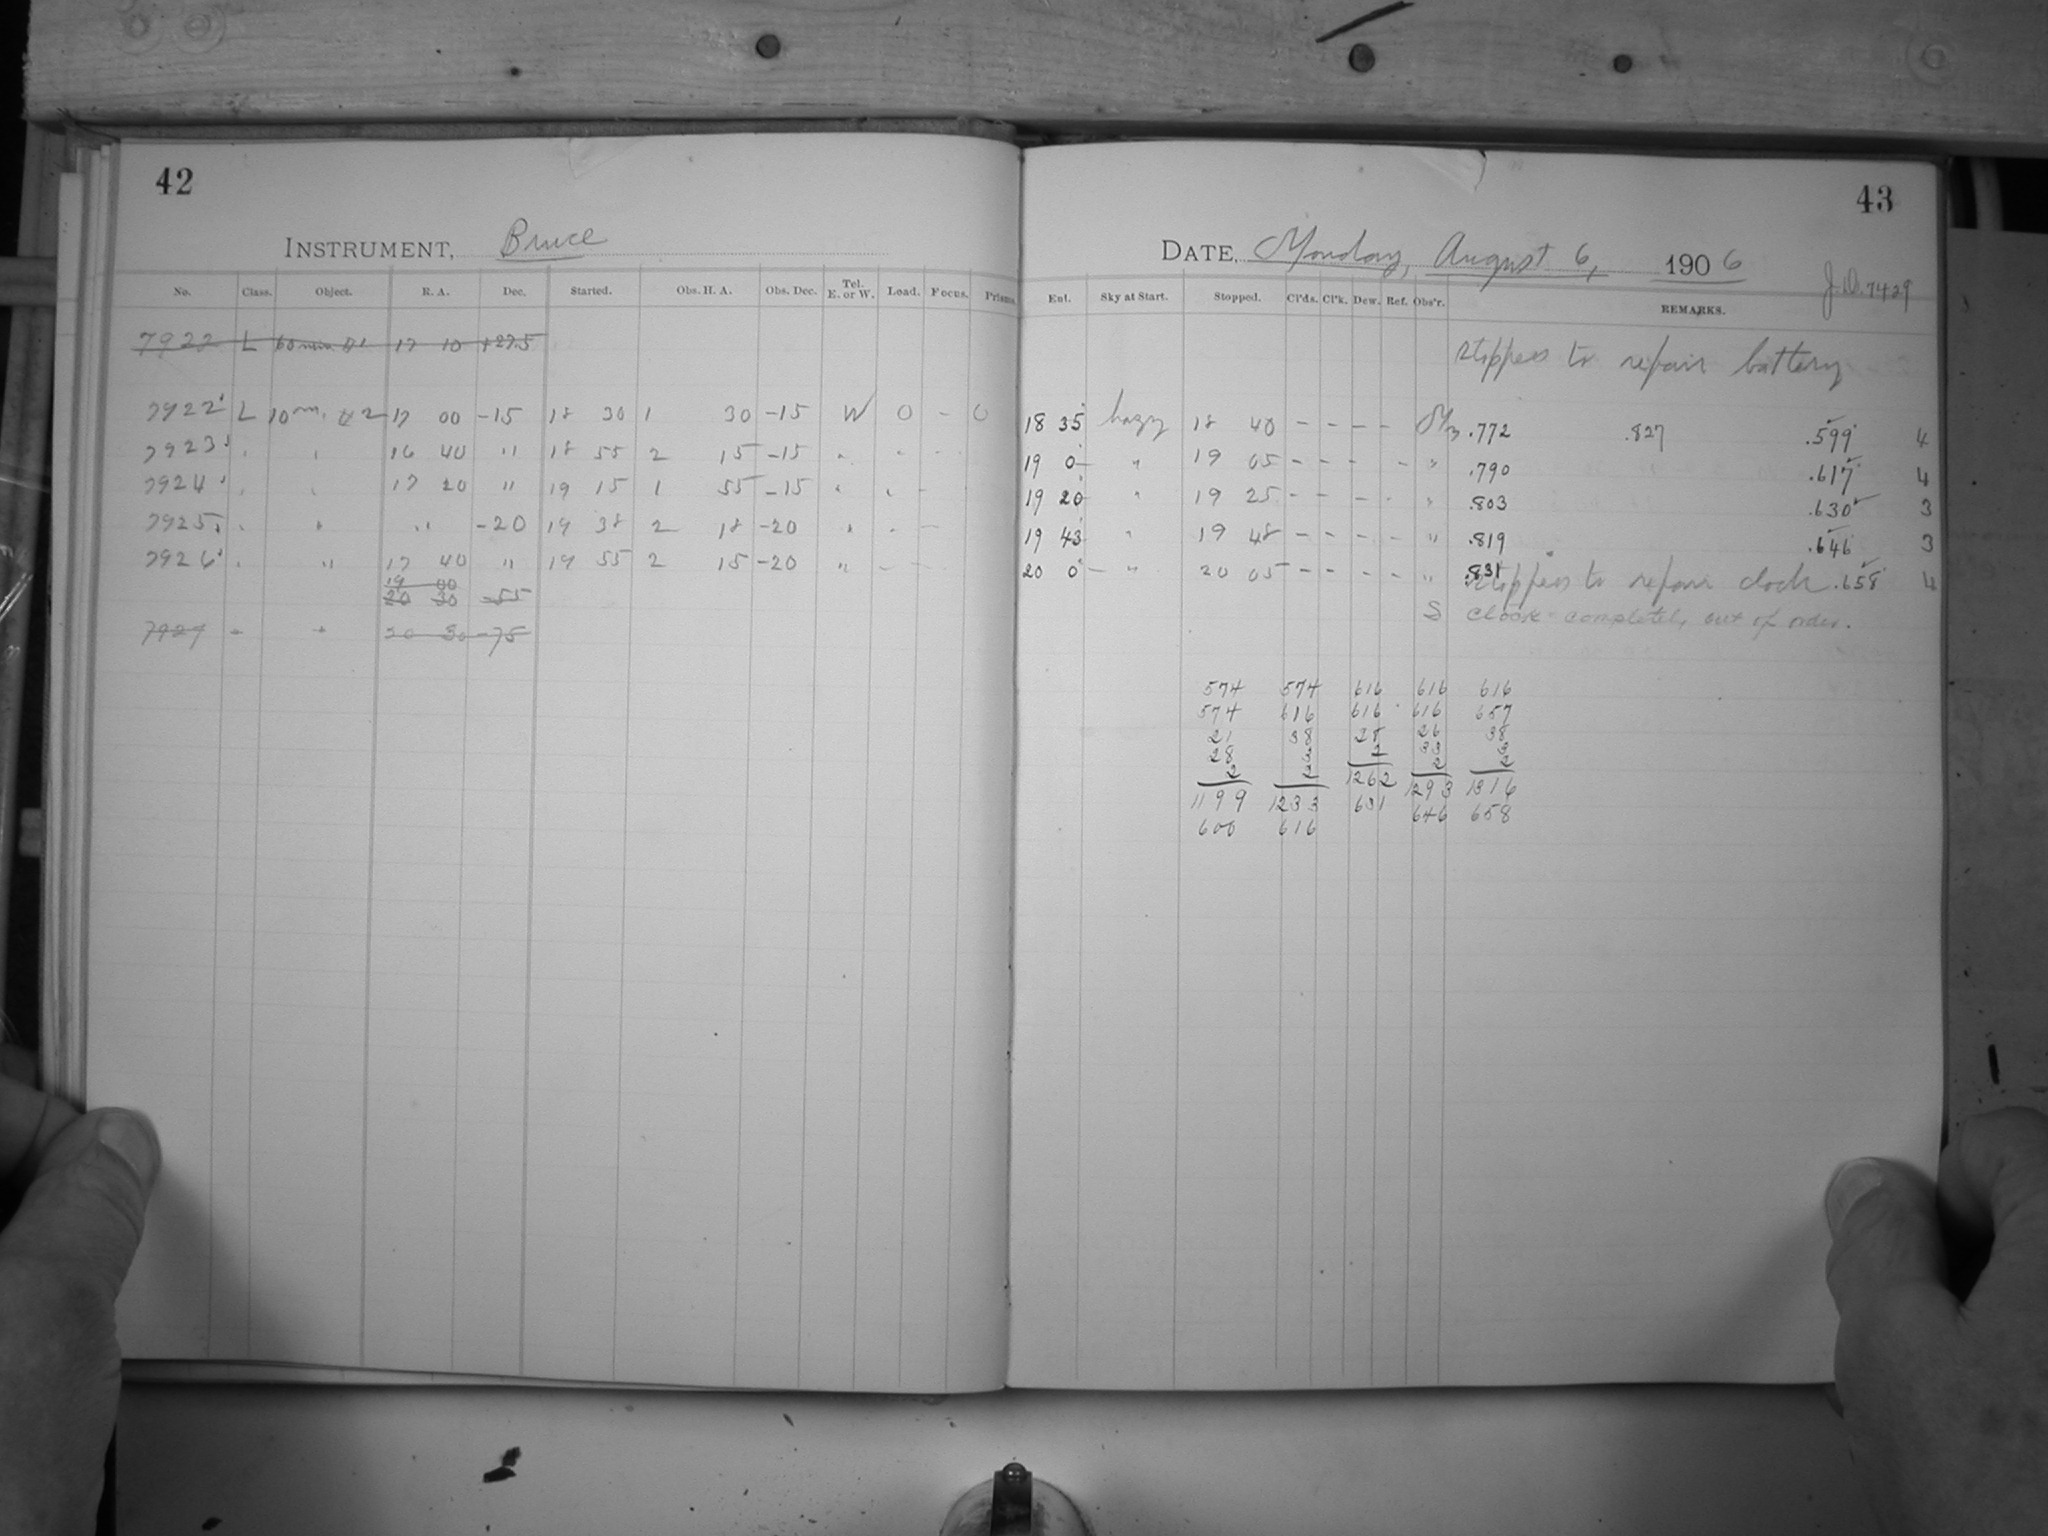 42
INSTRUMENT, Bruce
No. Class. Object. R. A. Dec. Started. Obs. H. A. Obs. Dec. Tel. E. or W. Load. Focus. Prisms.
7922 L 60 min 17 10 +27.5
7922 L 10 m. #2 17 00 -15 18 30 1 30 -15 W 0 - 0
7923 " " 16 40 " 18 55 2 15 -15 " " -
7924 " " 17 20 " 19 15 1 55 -15 " " -
7925 " " " -20 19 38 2 18 -20 " - -
7926 " " 17 40 " 19 55 2 15 -20 " - -
19 00
20 30 -55
7927 " " 20 30 -75
43
DATE, Monday, August 6, 1906
J.D. 7429
Ent. Sky at Start. Stopped. Cl'ds. Cl'k. Dew. Ref. Obs'r. REMARKS.
stopped to repair battery
18 35 hazy 18 40 - - - - .772 .827 .599 4
19 0 " 19 05 - - - - " .790 .617 4
19 20 " 19 25 - - - - " .803 .630 3
19 43 19 48 - - - - " .819 .646 3
20 0 - " 20 05 - - - - " .831 stopped to repair clock .658 4
S Clock completely out of order.
574 574 616 616 616
574 616 616 616 657
21 38 28 26 38
28 3 2 33 3
2 2 2 2
1199 1233 1262 1293 1316
600 616 631 646 658